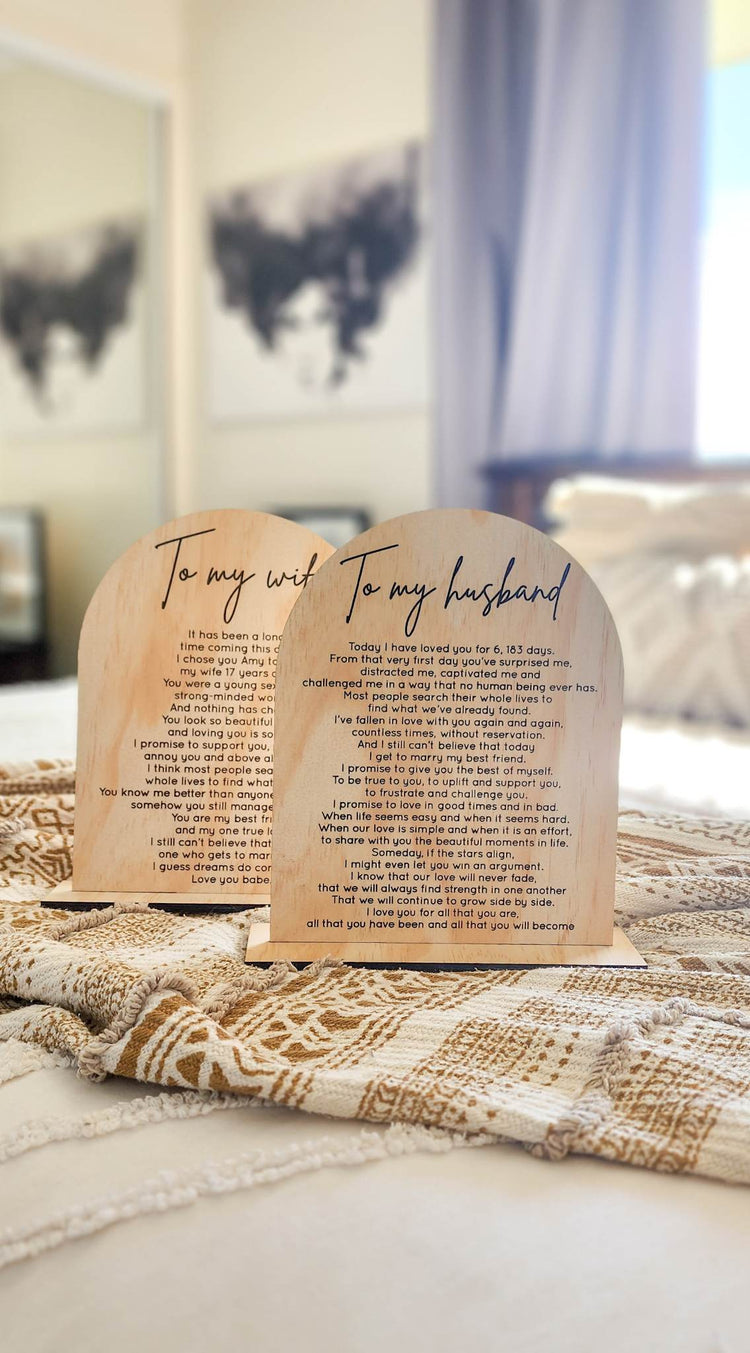 To my wif
It has been a long
time coming this d
I chose you Amy to
my wife 17 years a
You were a young sex
strong-minded wo
And nothing has ch
You look so beautiful
and loving you is so
I promise to support you,
annoy you and above al
I think most people sea
whole lives to find what
You know me better than anyone
somehow you still manage
You are my best fri
and my one true lo
I still can't believe that
one who gets to mar
I guess dreams do com
Love you babe.
To my husband
Today I have loved you for 6, 183 days.
From that very first day you've surprised me,
distracted me, captivated me and
challenged me in a way that no human being ever has.
Most people search their whole lives to
find what we've already found.
I've fallen in love with you again and again,
countless times, without reservation.
And I still can't believe that today
I get to marry my best friend.
I promise to give you the best of myself.
To be true to you, to uplift and support you,
to frustrate and challenge you.
I promise to love in good times and in bad.
When life seems easy and when it seems hard.
When our love is simple and when it is an effort,
to share with you the beautiful moments in life.
Someday, if the stars align,
I might even let you win an argument.
I know that our love will never fade,
that we will always find strength in one another
That we will continue to grow side by side.
I love you for all that you are,
all that you have been and all that you will become